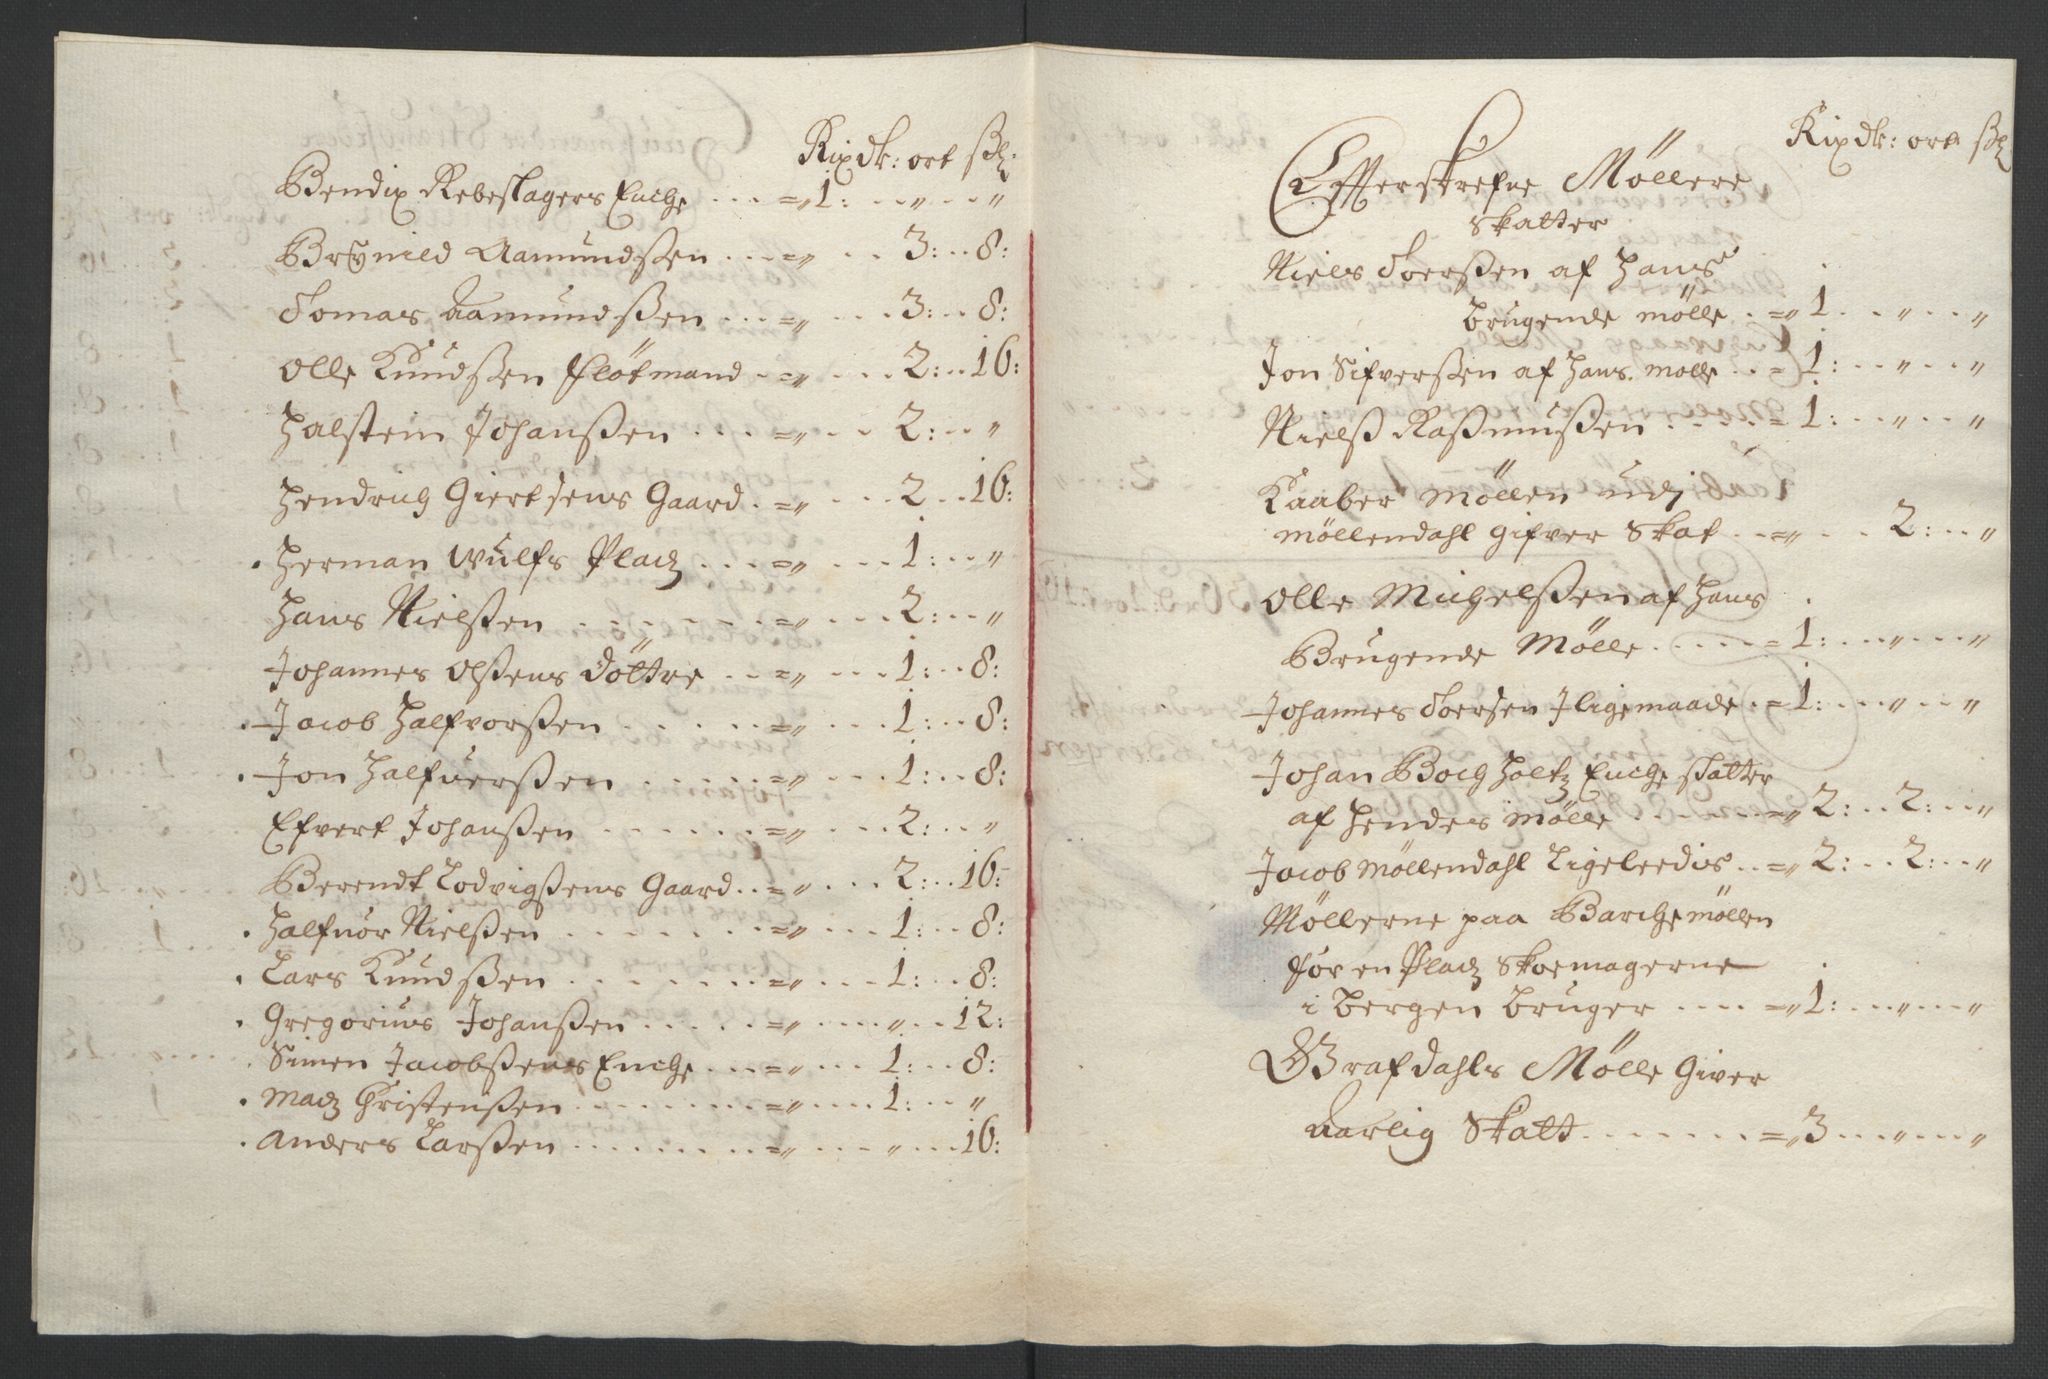 Rixdlr: ort ßl:
Bendix Rebeslagers Enche ... =„ 1: .. „ .. „
Brynild Aamundßen ... =„ .. 3: .. 8:
Tomas Aamundßen ... =„ ... 3: .. 8:
Olle Knudßen flötmand . =„ ... 2: .. 16:
Halstein Johanßen ... =„ ... 2: .. „
Hendrich Giertsens Gaard . =„ ... 2 .. 16:
. Herman Wulfs Pladz ... =„ ... 1: .. „
Hans Nielßen ...... =„ ... 2: .. „
Johannes Olßens Döttre ... =„ ... 1: .. 8:
. Jacob Halfvorßen ..... =„ ... 1: .. 8:
. Jon Halfuerßen ...... =„ ... 1: .. 8:
Efvert Johanßen ...... =„ ... 2: .. „
Berendt Lodvigßens Gaard .. =„ ... 2: .. 16:
. Halfuor Nielßen ....... =„ ... 1: .. 8:
. Lars Knudßen ....... =„ ... 1: .. 8:
. Gregorius Johanßen ..... =„ .... „ .. 12:
. Simen Jacobßens Enche ... =„ ... 1: .. 8:
. Madz Christenßen ....... =„ .... 1: .. „
. Anders Larßen ........ =„ ... „ ... 16:
Rixdlr: ort ßl
Effterskrefne Möllere
skatter
Niels Ioerßen af Hans
brugende mölle . =„ 1 . .. „ .. „
Jon Sifverßen af Hans mölle .. = 1: .. „ .. „
Nielß Raßmußen ..... = 1: .. „ .. „
Kaaber Möllen udj
möllendahl gifver Skat .. =„ .. 2: .. „
Olle Michelßen af Hans
Brugende Mölle ..... = 1: ... „ ... „
Johannes Ioersen Jligemaade . = 1: ... „ .. „
Johan Bochholtz Enche skatter
af Hendes mölle ...... =„ 2: .. 2: .. „
Jacob Möllendahl Ligeleedis .. =„ 2: .. 2: .. „
Möllerne paa Barchemöllen
for en Pladz Skoemagerne
i Bergen bruger .... =„ 1: ... „ ... „
Grafdahls Mölle Giver
Aarlig Skatt ....... =„ 3 ... „ ... „